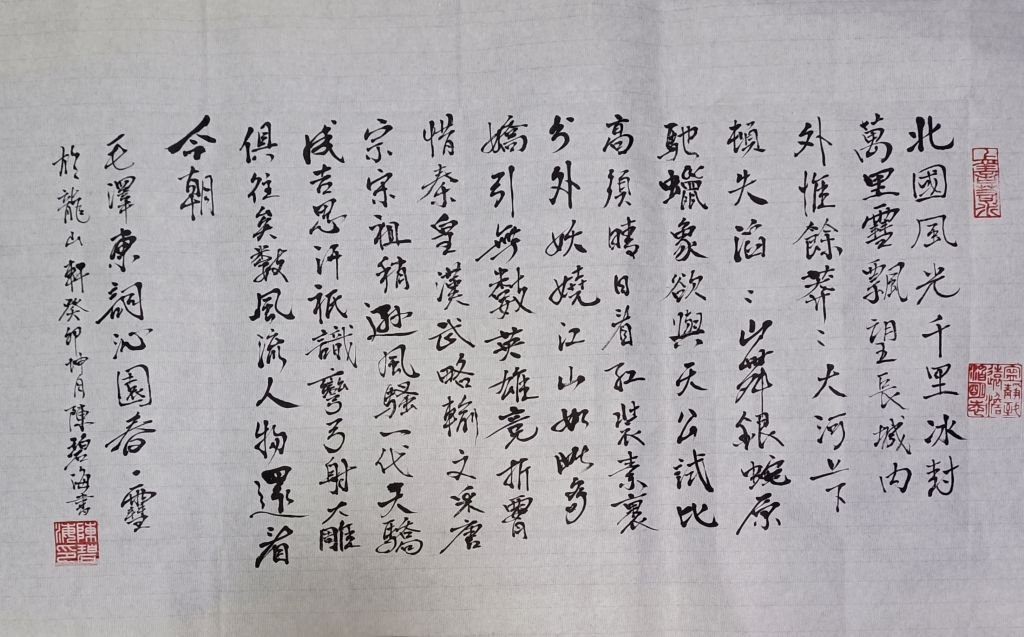 上善若水
北國風光千里冰封
萬里雪飄望長城內
外惟餘莽〻大河上下
頓失滔〻山舞銀蛇原
馳蠟象欲與天公試比
高須晴日看紅裝素裹
分外妖嬈江山如此多
嬌引無數英雄竞折腰
惜秦皇漢武略輸文采唐
宗宋祖稍遜風騷一代天驕
成吉思汗祇識彎弓射大雕
俱往矣數風流人物還看
今朝
毛澤東詞沁園春·雪
於龍山軒癸卯坤月陳碧海書
陳碧海印